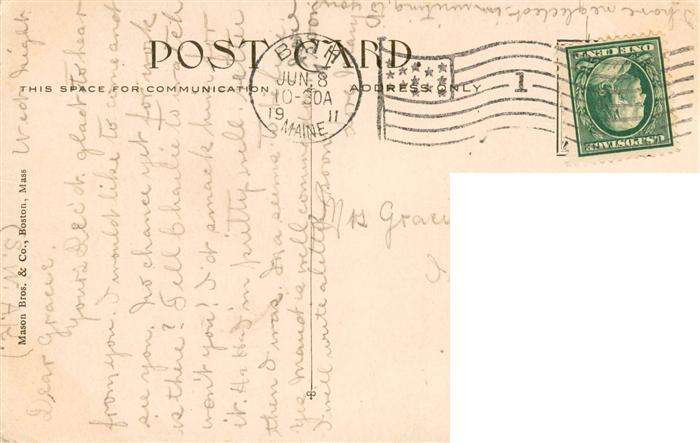 POST CARD
THIS SPACE FOR COMMUNICATION
ADDRESS ONLY
BATH
JUN 8
10-30A
19 11
MAINE
1
U.S. POSTAGE
ONE CENT
Mason Bros. & Co., Boston, Mass
Wed. night
Dear Gracie:
Yours Rec'd. glad to hear
from you. I would like to come and
see you. No chance yet for work
is there? Tell Charlie to watch
won't you? I'd smack him for
it. Ha Ha, I'm pretty well
then I was. seems
yes Maud is well
I will write a letter soon
neglected in writing you
Mrs Gracie